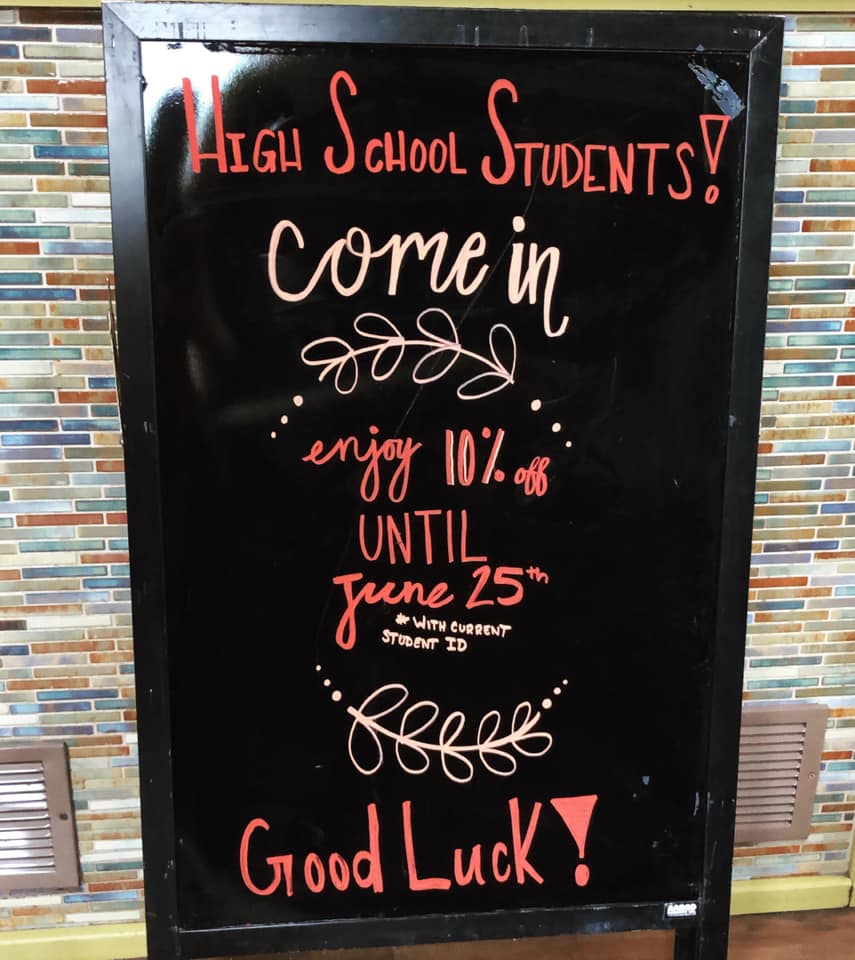 HIGH SCHOOL STUDENTS!
come in
enjoy 10% off
UNTIL
June 25th
* WITH CURRENT
STUDENT ID
Good Luck!